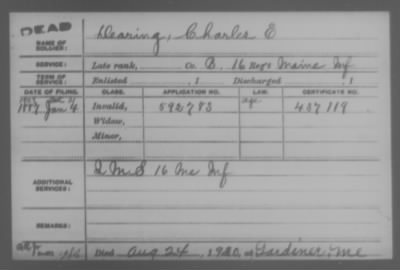 DEAD
NAME OF SOLDIER: Dearing, Charles E
SERVICE: Late rank, Co. B. 16 Reg't Maine Inf
TERM OF SERVICE: Enlisted , 1 Discharged , 1
DATE OF FILING. CLASS. APPLICATION NO. LAW. CERTIFICATE NO.
1887 Jan 4 Invalid, 592783 age 437119
Widow,
Minor,
ADDITIONAL SERVICES: 16 Me Inf
REMARKS:
Died Aug 24, 1920, at Gardiner, Me